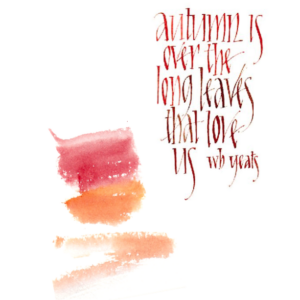 autumn is
over the
long leaves
that love
us wb yeats